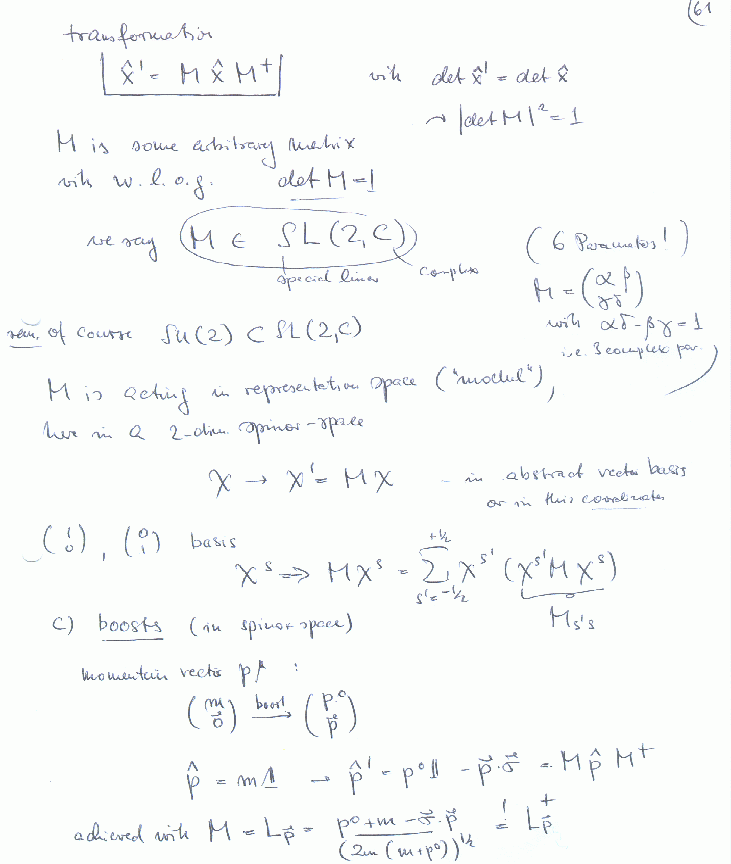 (61
transformation
x̂' = M x̂ M⁺ with det x̂' = det x̂
→ |det M|² = 1
M is some arbitrary matrix
with w.l.o.g. det M = 1
we say M ∈ SL(2,C) (6 Parameters!)
special linear complex
M = (α β
γ δ)
with αδ - βγ = 1
i.e. 3 complex par.
rem. of course SU(2) ⊂ SL(2,C)
M is acting in representation space ("modul"),
here in a 2-dim. spinor-space
χ → χ' = Mχ - in abstract vector basis
or in this coordinates
(1 0), (0 1) basis
χˢ ⇒ Mχˢ = Σ_{s'=-1/2}^{+1/2} χˢ' (χˢ' M χˢ)
M_{s's}
c) boosts (in spinor space)
momentum vector p^μ :
(m 0⃗) boost→ (p⁰ p⃗)
p̂ = m𝟙 → p̂' = p⁰𝟙 - p⃗·σ⃗ = M p̂ M⁺
achieved with M = L_p⃗ = (p⁰+m - σ⃗·p⃗)/(2m(m+p⁰))^{1/2} =! L⁺_p⃗